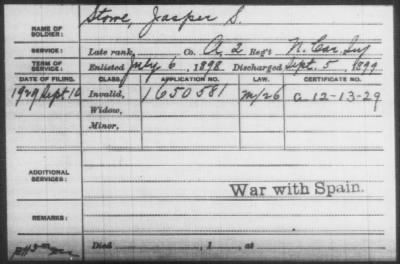 NAME OF SOLDIER: Stowe, Jasper S.
SERVICE: Late rank, Co. A, 2 Reg't N. Car. Inf
TERM OF SERVICE: Enlisted July 6, 1898 Discharged Sept. 5, 1899
DATE OF FILING. CLASS. APPLICATION NO. LAW. CERTIFICATE NO.
1929 Sept 16 Invalid, 1650581 m/26 C 12-13-29
Widow,
Minor,
ADDITIONAL SERVICES:
War with Spain.
REMARKS:
Died , 1 , at